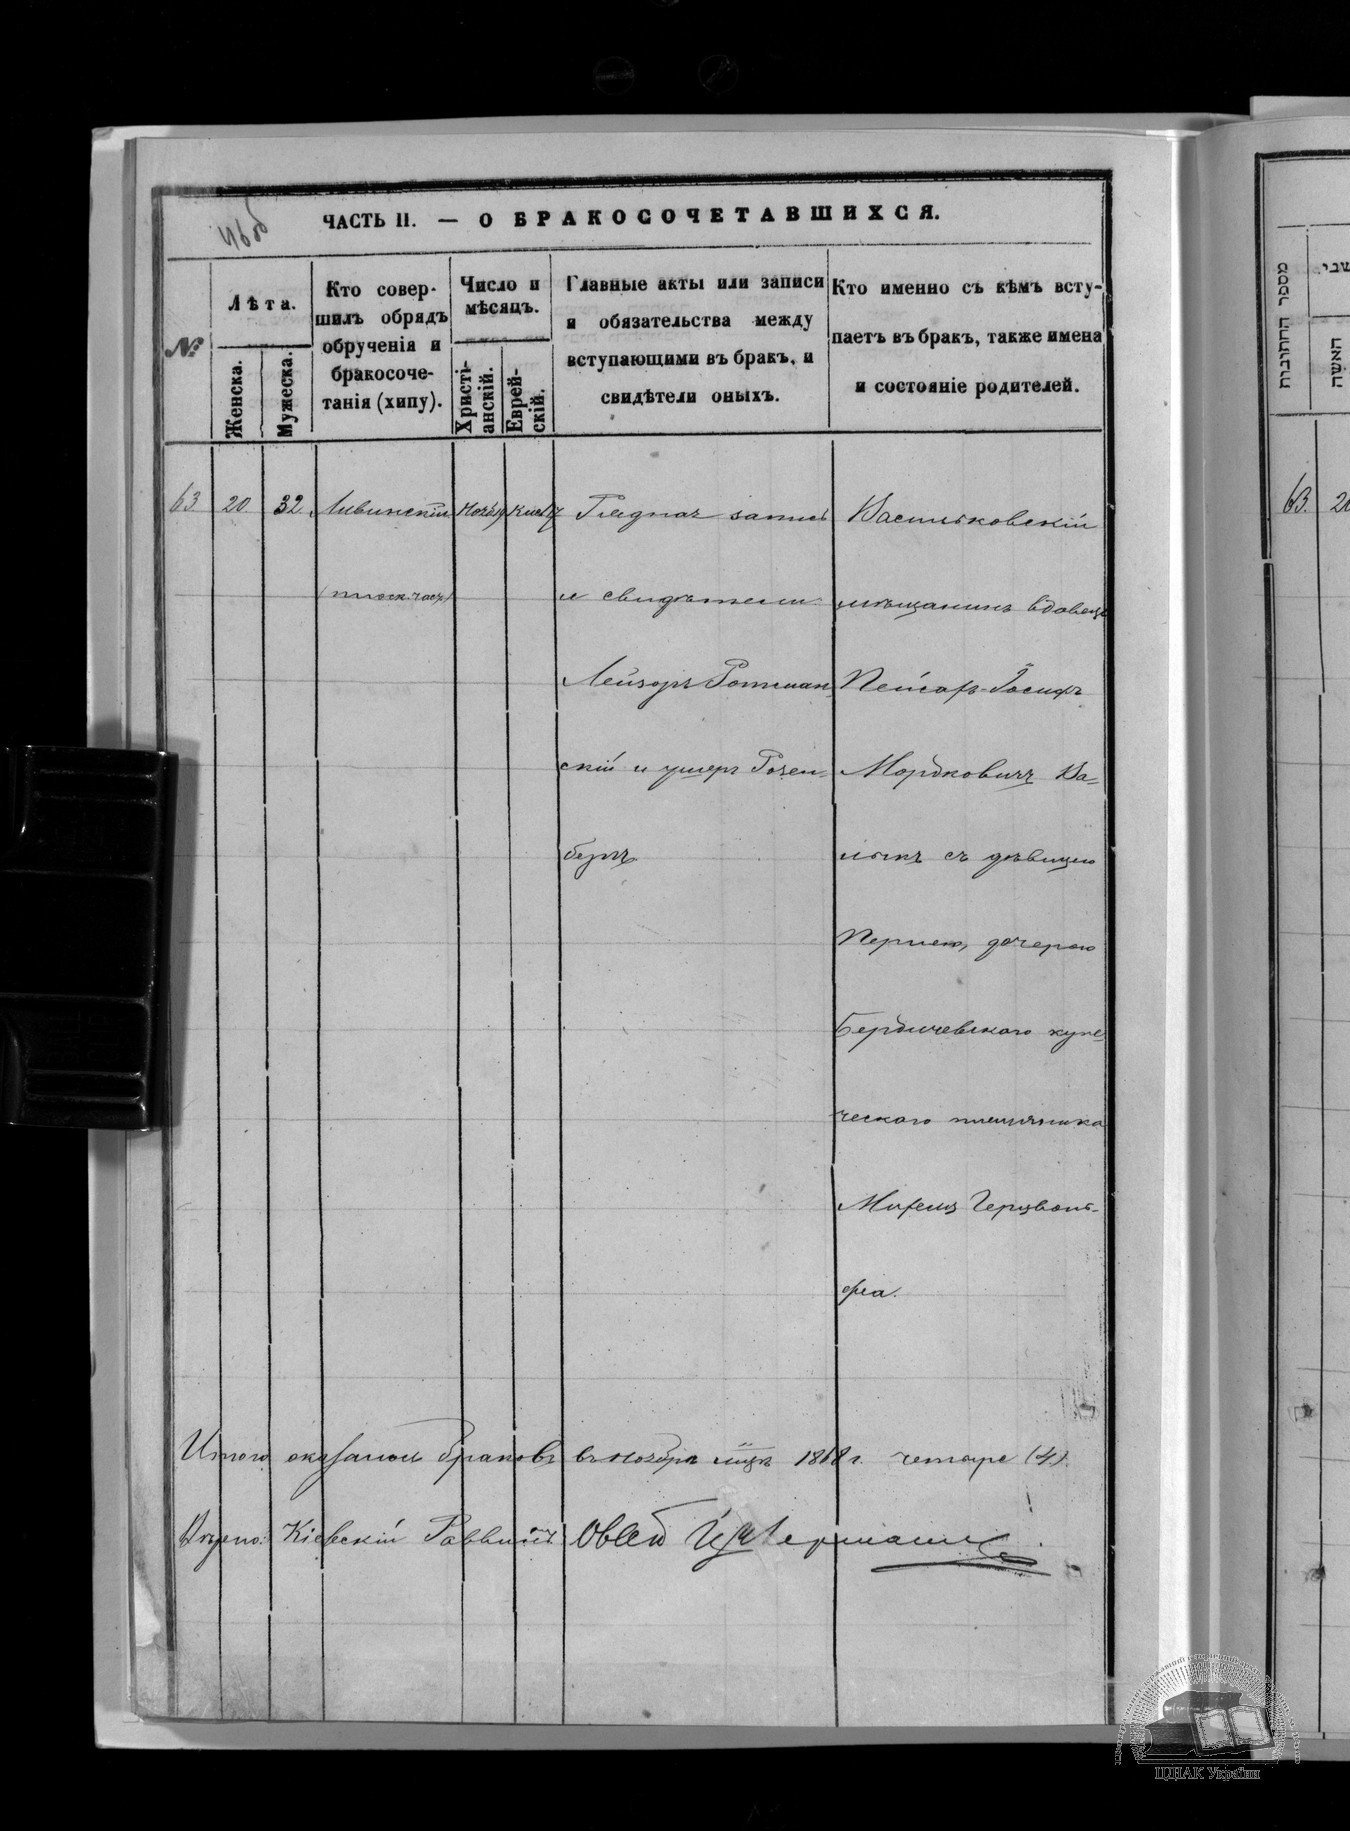 ЧАСТЬ II. — О БРАКОСОЧЕТАВШИХСЯ.
№
Лѣта.
Женска.
Мужеска.
Кто совер-
шилъ обрядъ
обрученія и
бракосоче-
танія (хипу).
Число и
мѣсяцъ.
Христі-
анскій.
Еврей-
скій.
Главные акты или записи
и обязательства между
вступающими въ бракъ, и
свидѣтели оныхъ.
Кто именно съ кѣмъ всту-
паетъ въ бракъ, также имена
и состояніе родителей.
63
20
32
Ливинскій
и свидѣтели
Лейзоръ Ротман-
скій и Ушеръ Розен-
бергъ.
Васильковскій
мѣщанинъ вдовецъ
Пейсахъ-Іосифъ
Мордковичъ Ва-
съ дѣвицею
Перлею, дочерью
Бердичевскаго купе-
ческаго племянника
Герцволь-
фа.
Итого оказалось браковъ въ ноябрѣ мцѣ 1868 г. четыре (4).
Вѣрно: Кіевскій Раввинъ
מספר החתונות
האשה
63.
ЦДІАК України